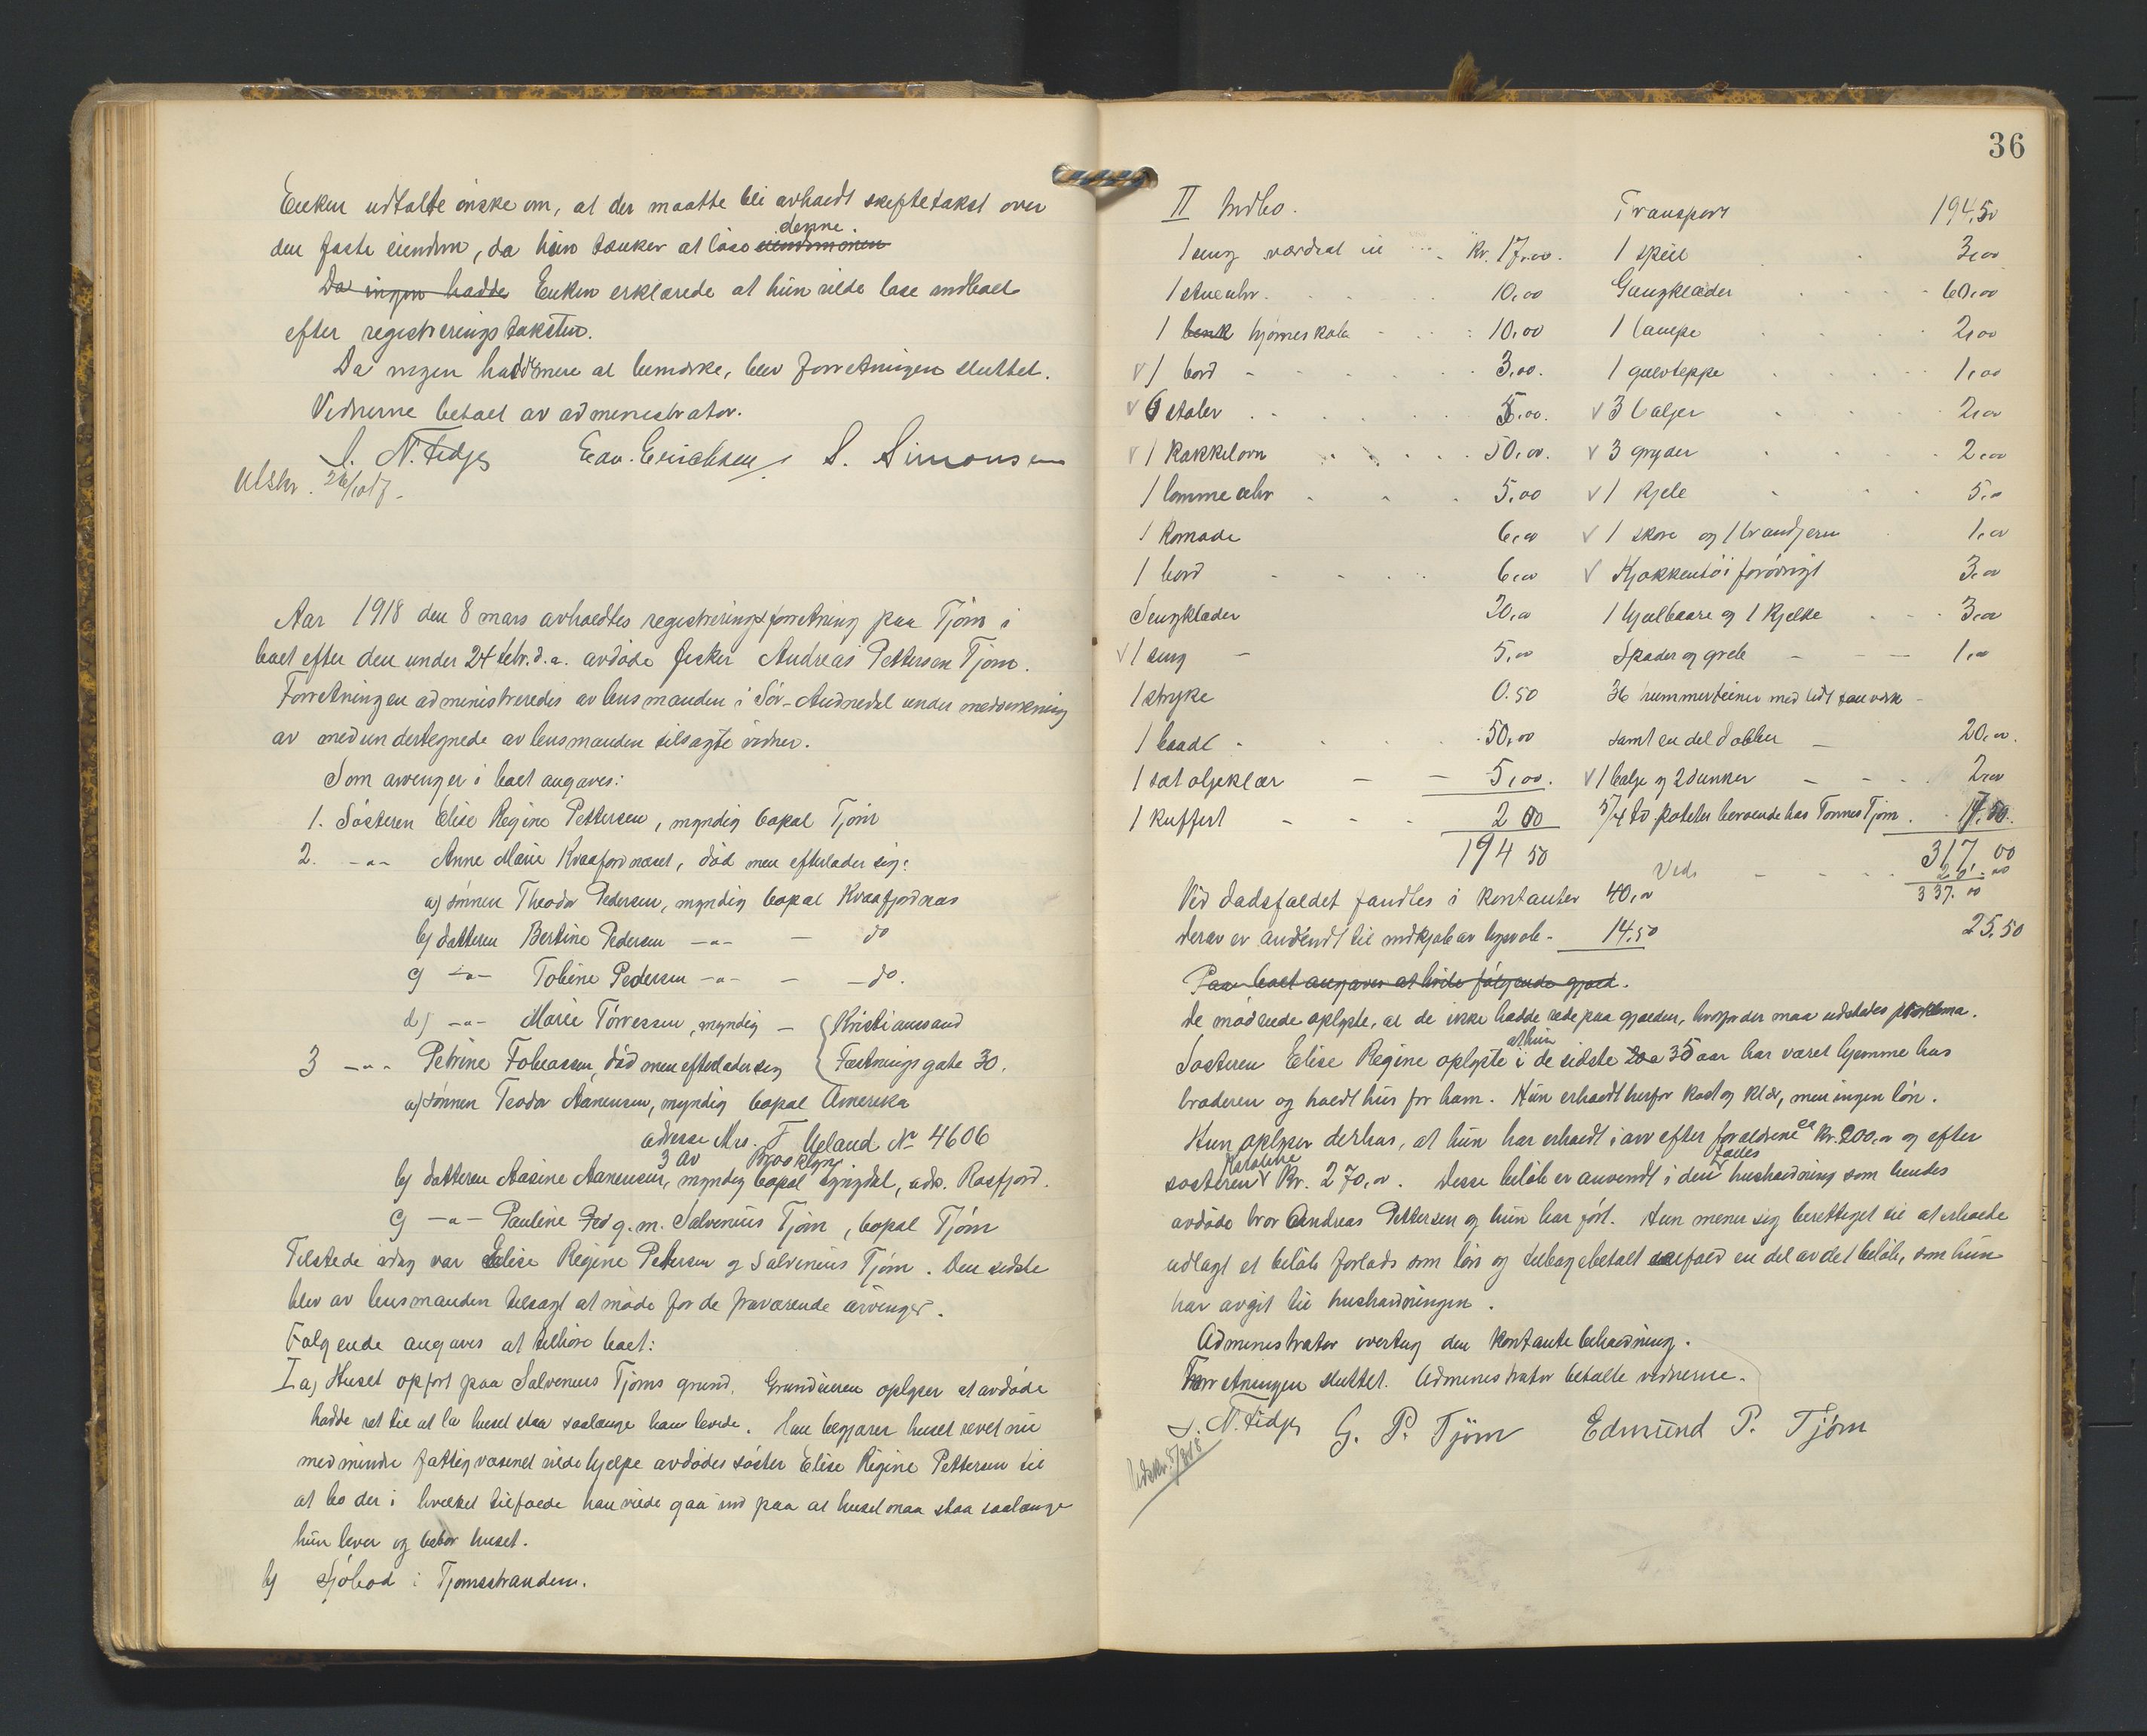 Enken udtalte ønske om, at der maatte bli avholdt skiftetakst over
den faste eiendom, da hun tænker at løse eiendommen denne.
Da ingen hadde Enken erklærede at hun vilde løse indboet
efter registreringstaksten.
Da ingen hadde mere at bemerke, blev forretningen sluttet.
Vidnerne betalt av administrator.
S. N. Fidje Edv. Erichsen S. Simonsen
Utskr. 26/10 17.
Aar 1918 den 8 mars avholdtes registreringsforretning paa Tjøm i
boet efter den under 24 febr. d.a. avdøde fisker Andreas Pettersen Tjøm.
Forretningen administreredes av lensmanden i Sør-Audnedal under medvirkning
av medundertegnede av lensmanden tilsagte vidner.
Som arvinger i boet angaves:
1. Søsteren Elise Regine Pettersen, myndig bopæl Tjøm
2. -"- Anne Marie Kvaafjordnæset, død men efterlader sig:
a) sønnen Theodor Pedersen, myndig bopæl Kvaafjordnæs
b) datteren Bertine Pedersen -"- - do
c) -"- Tobine Pedersen -"- - do.
d) -"- Marie Tørressen, myndig - Kristiansand
Fæstningsgate 30.
3 -"- Petrine Tobiassen, død men efterlader sig
a) sønnen Teodor Aanensen, myndig bopæl Amerika
adresse Mrs. T Ueland No 4606
3 av Brooklyn
b) datteren Aasine Aanensen, myndig bopæl Lyngdal, adr. Rosfjord.
c) -"- Pauline g.m. Salvenius Tjøm, bopæl Tjøm
Tilstede idag var Elise Regine Petersen og Salvenius Tjøm. Den sidste
blev av lensmanden tilsagt at møde for de fraværende arvinger.
Følgende angaves at tilhøre boet:
I a) Huset opført paa Salvenius Tjøms grund. Grundeieren oplyser at avdøde
hadde ret til at la huset staa saalænge han levede. Han begjærer huset revet nu
medmindre fattigvæsenet vilde hjelpe avdødes søster Elise Regine Pettersen til
at bo der i hvilket tilfælde han vilde gaa ind paa at huset maa staa saalænge
hun lever og bebor huset.
b) Sjøbod i Tjømsstranden.
36
II Indbo.
1 seng værdsat til Kr. 17,00.
1 stueuhr 10,00
1 benk hjørneskab 10,00
v 1 bord 3,00.
v 6 stoler 5,00.
v 1 kakkelovn 50,00.
1 lommeuhr 5,00
1 komode 6,00
1 bord 6,00
Sengklæder 20,00
v 1 seng 5,00
1 stryke 0.50
1 baad 50,00
1 sæt oljeklær 5,00.
1 kuffert 2 00
194 50
Transport 194,50
1 speil 3,00
Gangklæder 60,00
1 lampe 2,00
1 gulvteppe 1,00
v 3 baljer 2,00
v 3 gryder 2,00
v 1 kjele 5,00
v 1 skore og 1 brandjern 1,00
v Kjøkkentøi forøvrigt 3,00
1 hjulbaare og 1 kjelke 3,00
Spader og greb 1,00
36 hummerteiner med lidt tauverk
samt en del dobber 20,00.
v 1 balje og 2 dunker 2,00
5/4 td. poteter beroende hos Tønnes Tjøm 17,50.
317,00
Ved 20,00
337.00
Ved dødsfaldet fandtes i kontanter 40,00
Derav er anvendt til indkjøb av 14,50 25,50
Paa boet angaves at hvile følgende gjæld.
De mødende oplyste, at de ikke hadde rede paa gjælden, hvorfor der maa udstedes proklama.
Søsteren Elise Regine oplyste at hun i de sidste 35 aar har været hjemme hos
broderen og holdt hus for ham. Hun erholdt herfor kost og klær, men ingen løn.
Hun oplyser derhos, at hun har erholdt i arv efter forældrene ca Kr. 200,00 og efter
søsteren Karoline Kr. 270,00. Disse beløb er anvendt i den fælles husholdning som hendes
avdøde bror Andreas Pettersen og hun har ført. Hun mener sig berettiget til at erholde
udlagt et beløb forlods som løn og tilbagebetalt ialfald en del av det beløb, som hun
har avgit til husholdningen.
Administrator overtog den kontante beholdning.
Forretningen sluttet. Administrator betalte vidnerne.
S. N. Fidje G. P. Tjöm Edmund P. Tjøm
Udskr. 5/8 18